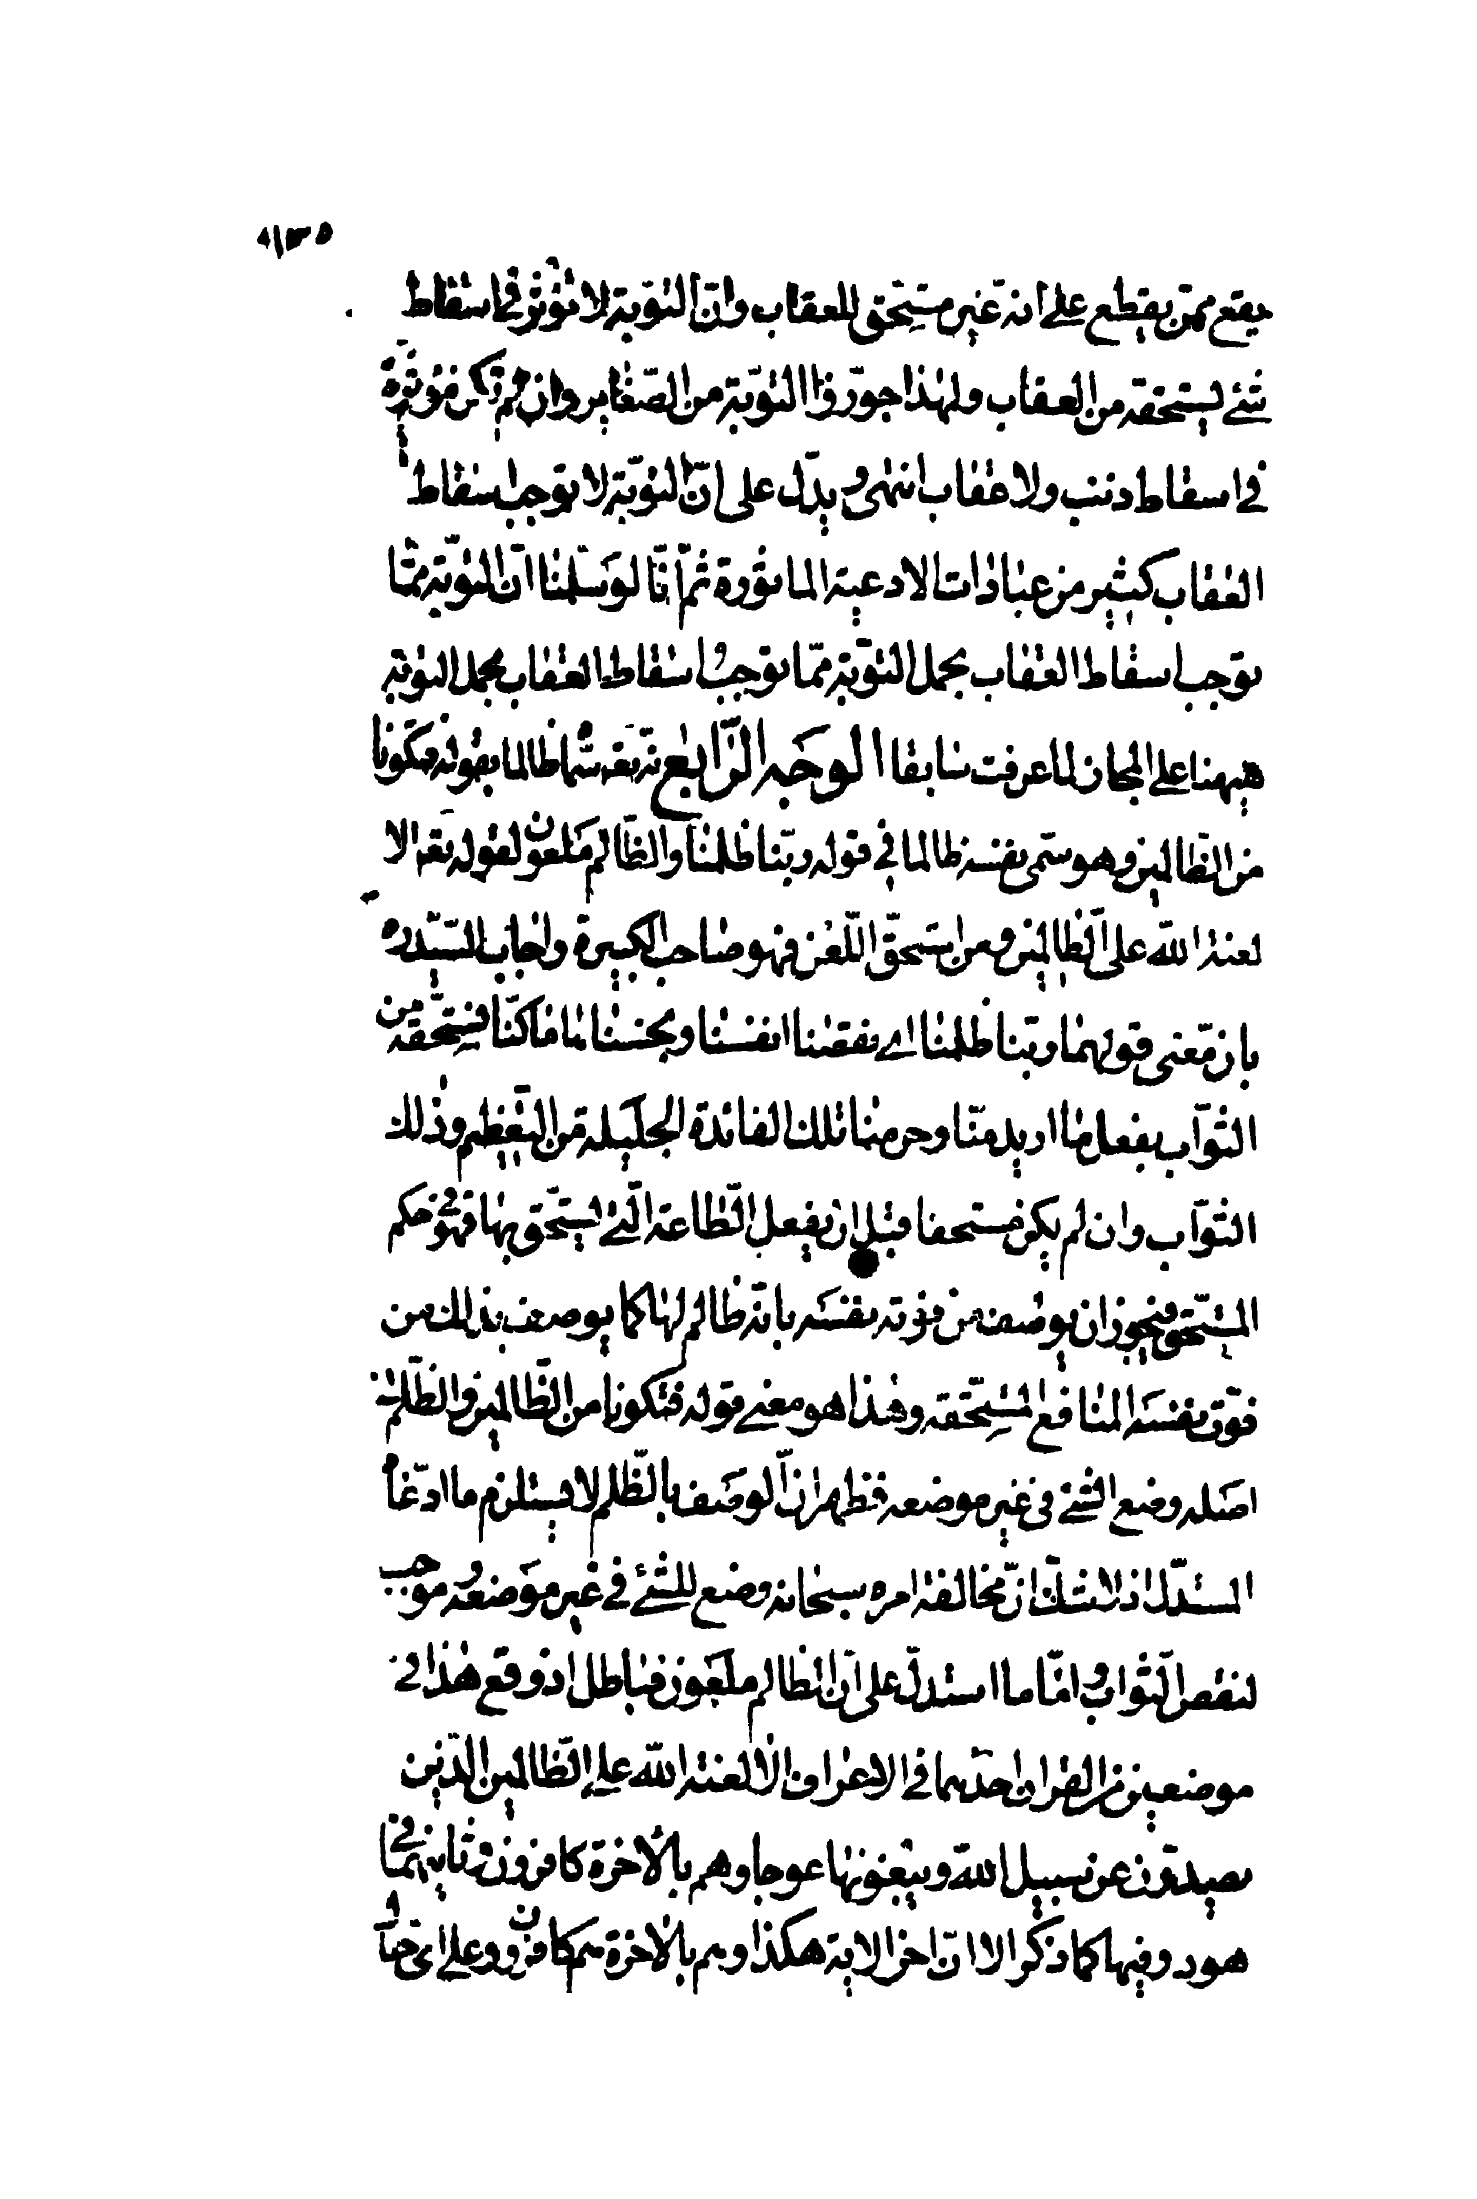 يقع ممّن يقطع على انه غير مستحق للعقاب وانّ التوبة لا تؤثر في اسقاط
شئ يستحقه من العقاب ولهذا جوّزوا التوبة من الصّغاير وان لم تكن مؤثرة
في اسقاط ذنب ولا عقاب انتهى ويدّل على انّ التوبة لا توجب اسقاط
العقاب كثير من عبادات الادعية الماثورة ثمّ انّا لو سلمنا انّ التوبة ممّا
توجب اسقاط العقاب بحمل التوبة ممّا توجب اسقاط العقاب بحمل التوبة
هيهنا على المجاز لما عرفت سابقا الوجه الرّابع انّه تعالى سمّاه ظالما بقوله فتكونا
من الظالمين وهو سمّى نفسه ظالما في قوله ربّنا ظلمنا والظّالم ملعون لقوله تعالى الا
لعنة الله على الظالمين ومن استحقّ اللّعن فهو صاحب الكبيرة واجاب السّيّد ره
بان معنى قولهما ربّنا ظلمنا اى نقصنا انفسنا وبخسناها ما كنّا نستحقّه من
الثواب بفعل ما اريد منّا وحرمنا تلك الفائدة الجليلة من التّعظيم وذلك
الثواب وان لم يكن مستحقا قبل ان يفعل الطّاعة الّتي يستحّق بها فهو في حكم
المستحّق فيجوز ان يوصف من فوّته نفسه بانّه ظالم لها كما يوصف بذلك من
فوّت نفسه المنافع المستحّقه وهذا هو معنى قوله فتكونا من الظّالمين والظّلم
اصله وضع الشئ في غير موضعه فظهر انّ الوصف بالظّلم لا يستلزم ما ادّعاه
المستدّل اذ لا شكّ انّ مخالفة امره سبحانه وضع للشئ في غير موضعه وموجب
لنقص الثّواب وامّا ما استدلّ على انّ الظالم ملعون فباطل اذ وقع هذا في
موضعين من القران احدهما في الاعراف الا لعنة الله على الظّالمين الّذين
يصدّون عن سبيل الله ويبغونها عوجا وهم بالاخرة كافرون وثانيهما في
هود وفيها كما ذكر الا انّ اخر الاية هكذا وهم بالاخرة هم كافرون وعلى اى حال